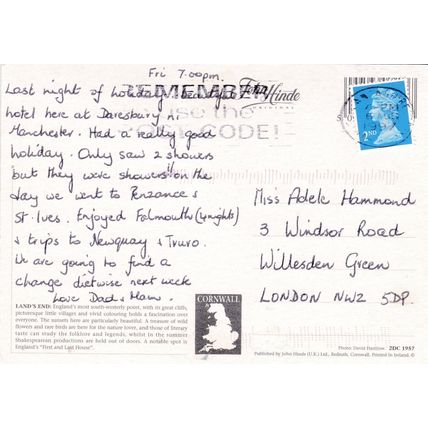 Fri 7.00pm.
Last night of holiday.
hotel here at Daresbury Nr
Manchester. Had a really good
holiday. Only saw 2 showers
but they were showers!! on the
day we went to Penzance &
St. Ives. Enjoyed Falmouth (4 nights)
& trips to Newquay & Truro.
We are going to find a
change dietwise next week
Love Dad & Mum.
REMEMBER
use the
POSTCODE!
John Hinde
ORIGINAL
2ND
Miss Adele Hammond
3 Windsor Road
Willesden Green
LONDON NW2 5DP.
LAND'S END: England's most south-westerly point, with its great cliffs,
picturesque little villages and vivid colouring holds a fascination over
everyone. The sunsets here are particularly beautiful. A treasure of wild
flowers and rare birds are here for the nature lover, and those of literary
taste can study the folklore and legends, whilst in the summer
Shakespearean productions are held out of doors. A notable spot is
England's "First and Last House".
CORNWALL
Photo: David 2DC 1957
Published by John Hinde (U.K.) Ltd., Redruth, Cornwall. Printed in Ireland. ©